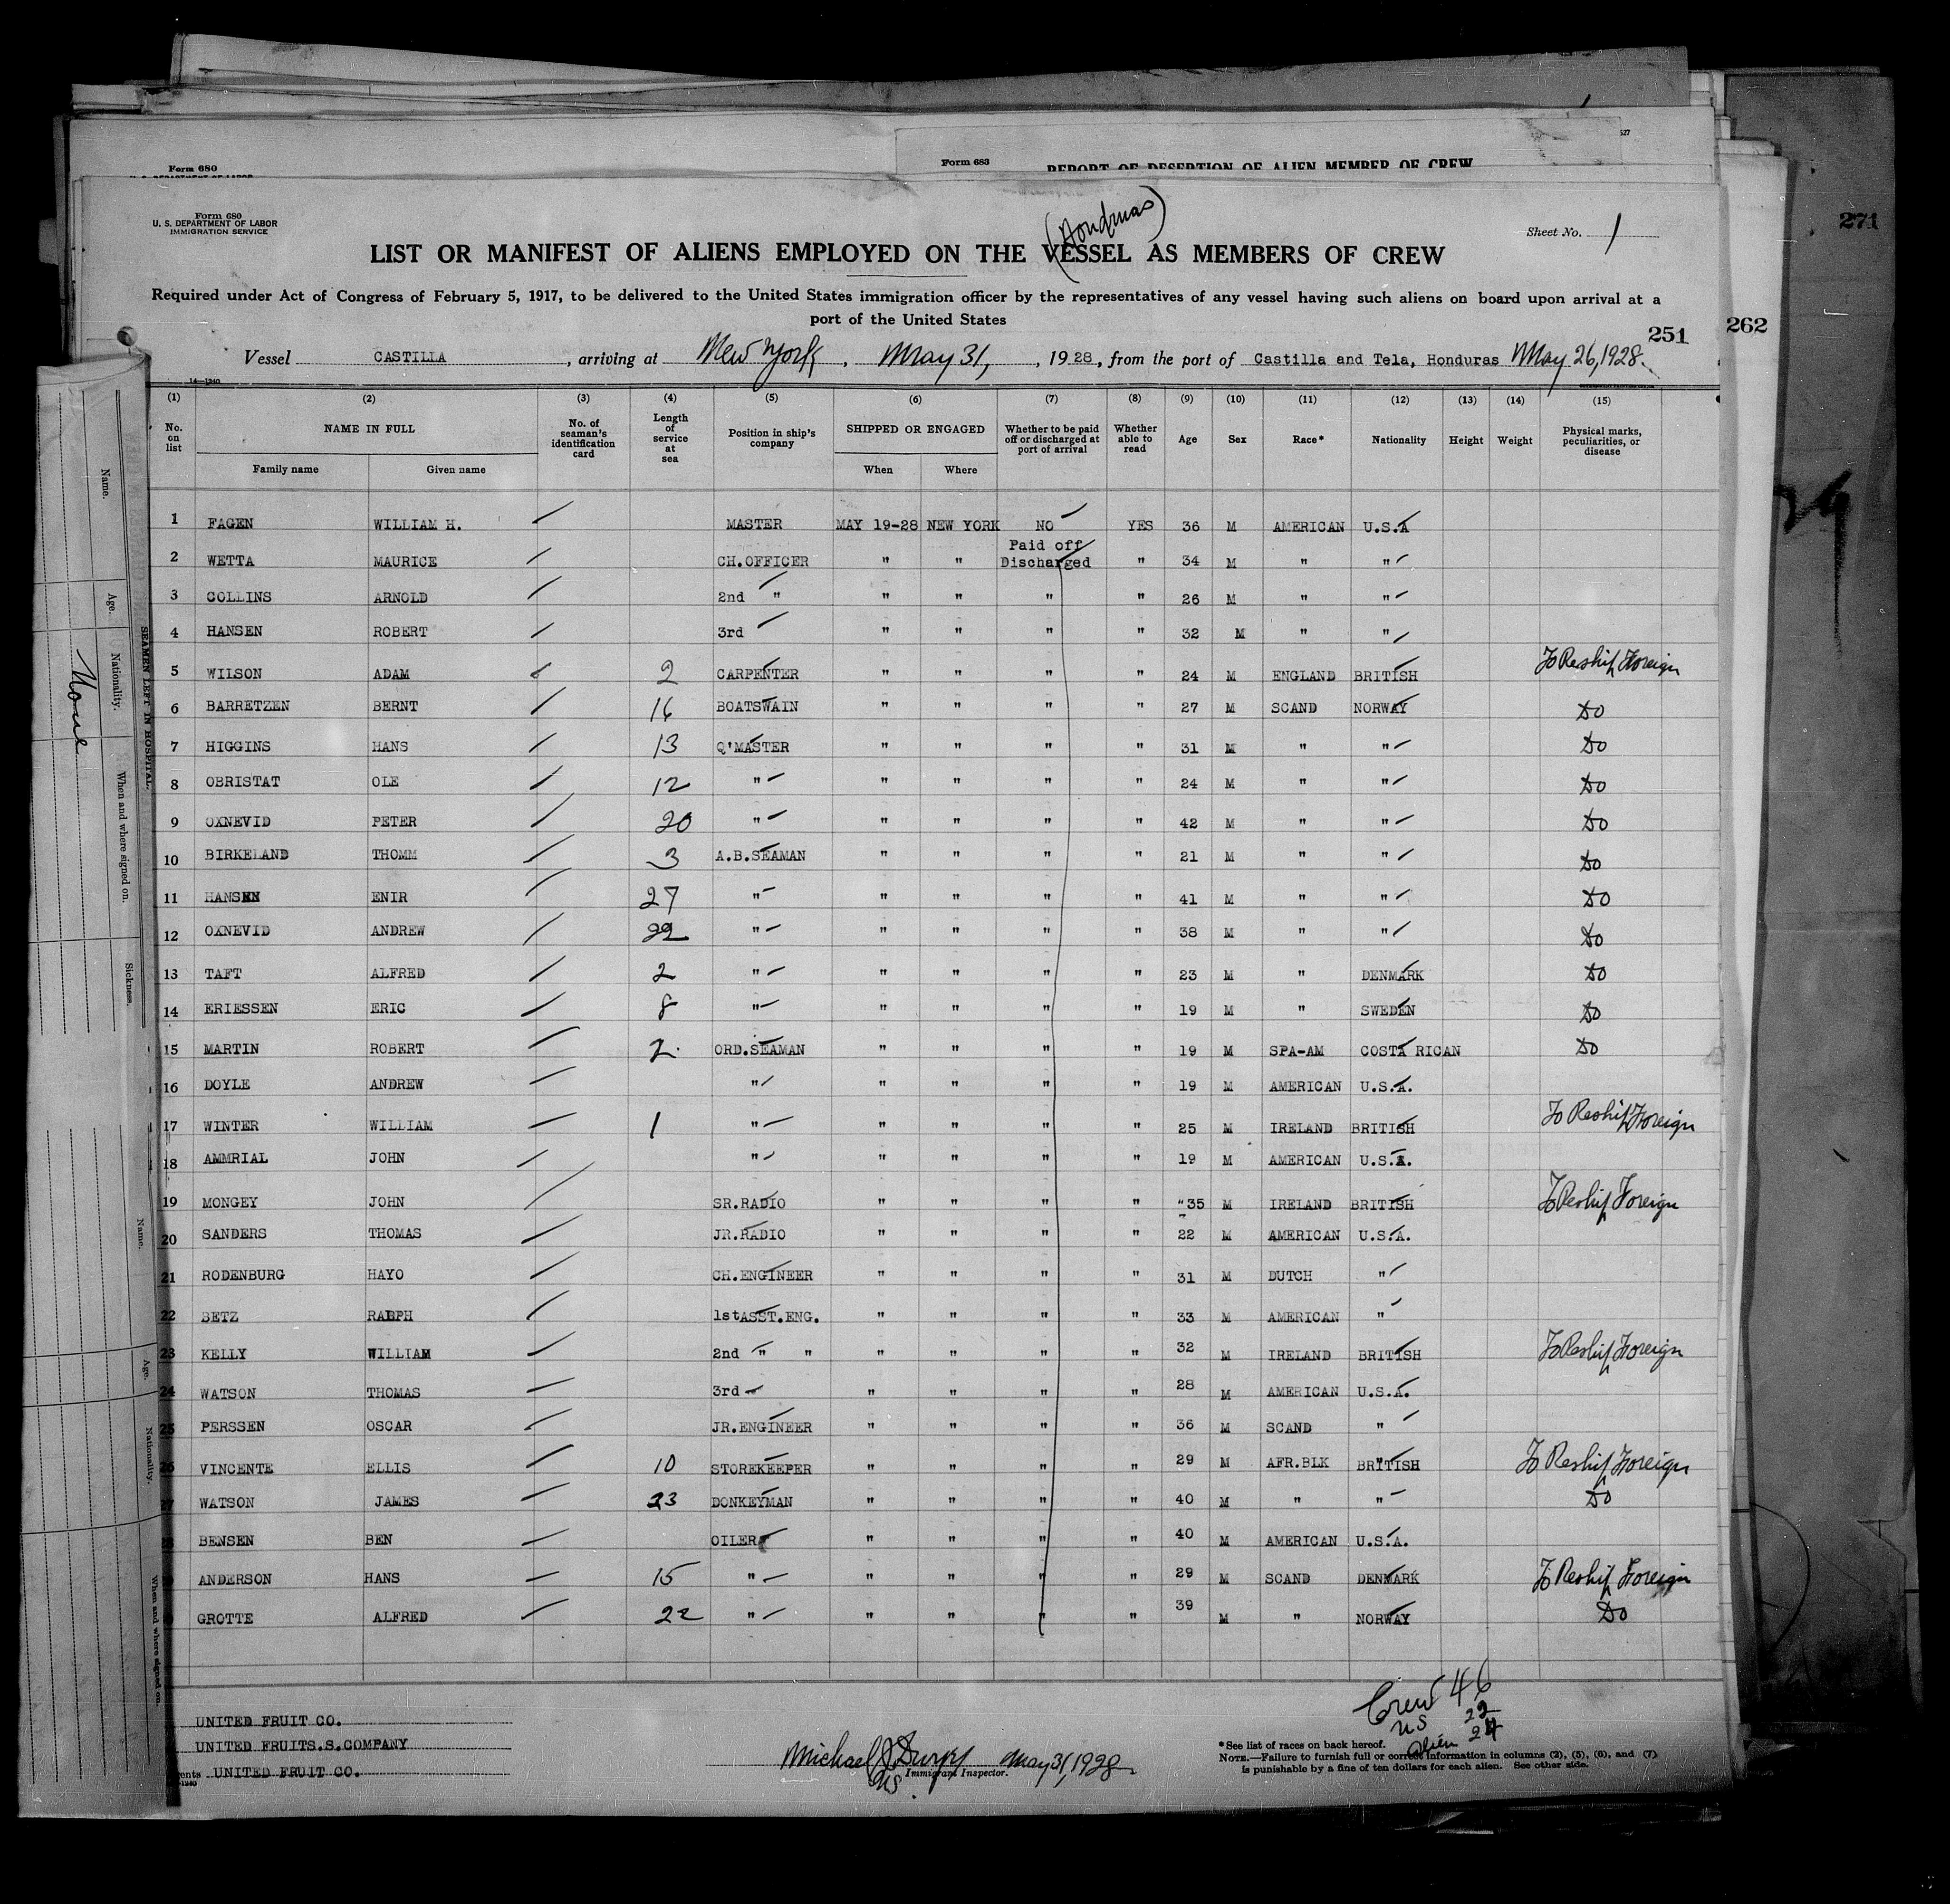 Form 680
Form 683
REPORT OF DESERTION OF ALIEN MEMBER OF CREW
527
271
262
Form 680
U. S. DEPARTMENT OF LABOR
IMMIGRATION SERVICE
(Honduras)
Sheet No. 1
LIST OR MANIFEST OF ALIENS EMPLOYED ON THE VESSEL AS MEMBERS OF CREW
Required under Act of Congress of February 5, 1917, to be delivered to the United States immigration officer by the representatives of any vessel having such aliens on board upon arrival at a
port of the United States
251
Vessel CASTILLA, arriving at New York, May 31, 1928, from the port of Castilla and Tela, Honduras May 26, 1928.
14-1240
(1) (2) (3) (4) (5) (6) (7) (8) (9) (10) (11) (12) (13) (14) (15)
No. on list NAME IN FULL No. of seaman's identification card Length of service at sea Position in ship's company SHIPPED OR ENGAGED Whether to be paid off or discharged at port of arrival Whether able to read Age Sex Race* Nationality Height Weight Physical marks, peculiarities, or disease
Family name Given name When Where
1 FAGEN WILLIAM H. MASTER MAY 19-28 NEW YORK NO YES 36 M AMERICAN U.S.A
2 WETTA MAURICE CH.OFFICER " " Paid off Discharged " 34 M " "
3 COLLINS ARNOLD 2nd " " " " " 26 M " "
4 HANSEN ROBERT 3rd " " " " 32 M " "
5 WILSON ADAM 2 CARPENTER " " " " 24 M ENGLAND BRITISH To Reship Foreign
6 BARRETZEN BERNT 16 BOATSWAIN " " " " 27 M SCAND NORWAY Do
7 HIGGINS HANS 13 Q'MASTER " " " " 31 M " " Do
8 OBRISTAT OLE 12 " " " " " 24 M " " Do
9 OXNEVID PETER 20 " " " " " 42 M " " Do
10 BIRKELAND THOMM 3 A.B.SEAMAN " " " " 21 M " " Do
11 HANSEN ENIR 27 " " " " " 41 M " " Do
12 OXNEVID ANDREW 22 " " " " " 38 M " " Do
13 TAFT ALFRED 2 " " " " " 23 M " DENMARK Do
14 ERIESSEN ERIC 8 " " " " " 19 M " SWEDEN Do
15 MARTIN ROBERT 2 ORD.SEAMAN " " " " 19 M SPA-AM COSTA RICAN Do
16 DOYLE ANDREW " " " " " 19 M AMERICAN U.S.A.
17 WINTER WILLIAM 1 " " " " " 25 M IRELAND BRITISH To Reship Foreign
18 AMMRIAL JOHN " " " " " 19 M AMERICAN U.S.A.
19 MONGEY JOHN SR.RADIO " " " " "35 M IRELAND BRITISH To Reship Foreign
20 SANDERS THOMAS JR.RADIO " " " " 22 M AMERICAN U.S.A.
21 RODENBURG HAYO CH.ENGINEER " " " " 31 M DUTCH "
22 BETZ RALPH 1stASST.ENG. " " " " 33 M AMERICAN "
23 KELLY WILLIAM 2nd " " " " " " 32 M IRELAND BRITISH To Reship Foreign
24 WATSON THOMAS 3rd " " " " 28 M AMERICAN U.S.A.
25 PERSSEN OSCAR JR.ENGINEER " " " " 36 M SCAND "
26 VINCENTE ELLIS 10 STOREKEEPER " " " " 29 M AFR.BLK BRITISH To Reship Foreign
27 WATSON JAMES 23 DONKEYMAN " " " " 40 M " " Do
28 BENSEN BEN OILER " " " " 40 M AMERICAN U.S.A.
ANDERSON HANS 15 " " " " " 29 M SCAND DENMARK To Reship Foreign
GROTTE ALFRED 22 " " " " " 39 M " NORWAY Do
Crew 46
US 22
Alien 24
UNITED FRUIT CO.
UNITED FRUITS.S.COMPANY
ents UNITED FRUIT CO.
-1240
Michael May 31, 1928
Immigrant Inspector.
*See list of races on back hereof.
NOTE.—Failure to furnish full or correct information in columns (2), (5), (6), and (7)
is punishable by a fine of ten dollars for each alien. See other side.
SEAMEN LEFT IN HOSPITAL.
Name. Age. Nationality. When and where signed on. Sickness.
None
Name. Age. Nationality. When and where signed on.